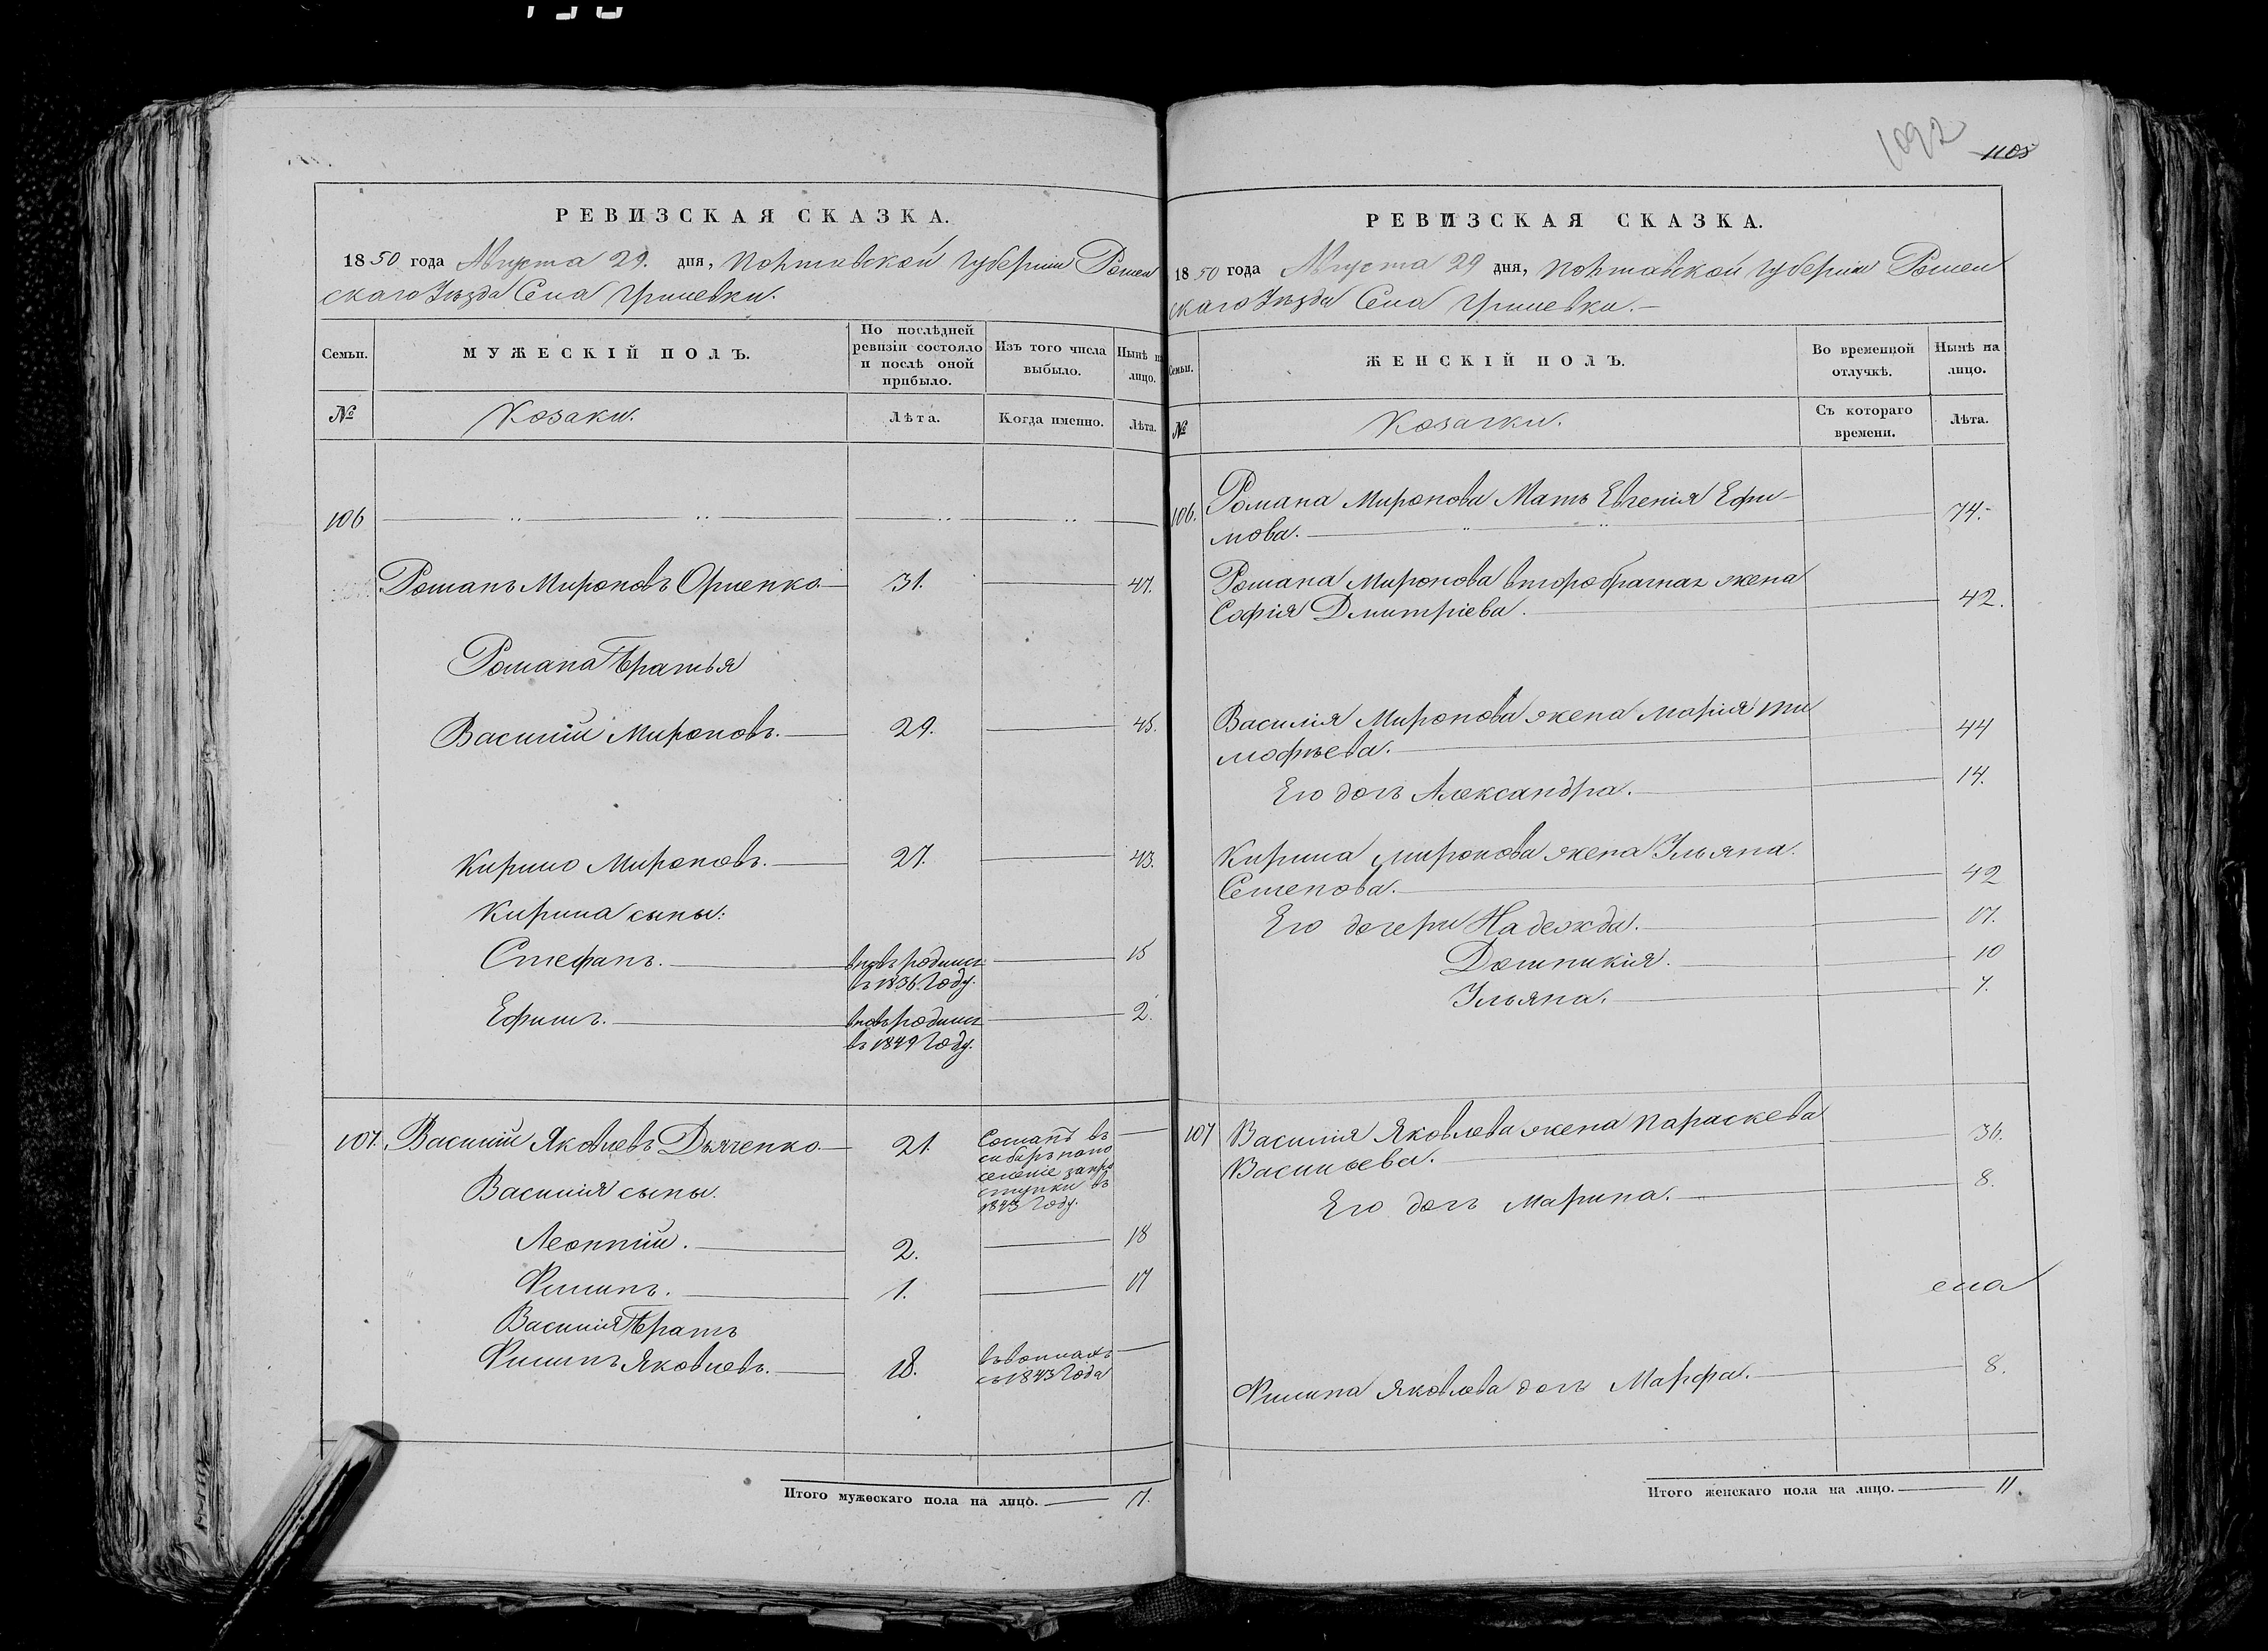 1092
1105
РЕВИЗСКАЯ СКАЗКА.
1850 года Августа 29. дня, Полтавской Губерніи Ромен
скаго Уѣзда Села Гришевки.
Семьи.
МУЖЕСКІЙ ПОЛЪ.
По послѣдней
ревизіи состояло
и послѣ оной
прибыло.
Изъ того числа
выбыло.
Нынѣ на
лицо.
№
Козаки.
Лѣта.
Когда именно.
Лѣта.
106
Романъ Мироновъ Ориенко 31. 47.
Романа Братья
Василій Мироновъ. 29. 45.
Кирило Мироновъ. 27. 43.
Кирила сыны:
Стефанъ. вновь родился 15
въ 1836 году.
Ефимъ. вновь родился 2.
въ 1849 году.
107. Василій Яковлевъ Дьяченко 21. Сосланъ въ
сибирь на по
селеніе за пре
ступки въ
1843 году.
Василія сыны.
Леонтій. 2. 18
Филипъ. 1. 17
Василія Братъ
Филипъ Яковлевъ. 18. въ воинахъ
съ 1843 года
Итого мужескаго пола на лицо. 7.
РЕВИЗСКАЯ СКАЗКА.
1850 года Августа 29 дня, Полтавской Губерніи Ромен
скаго Уѣзда Села Гришевки.
Семьи.
ЖЕНСКІЙ ПОЛЪ.
Во временной
отлучкѣ.
Нынѣ на
лицо.
№
Козачки.
Съ котораго
времени.
Лѣта.
106. Романа Миронова Мать Евгенія Ефи-
мова. 74.
Романа Миронова второбрачная жена
Софія Дмитріева. 42.
Василія Миронова жена Марія Ти
мофѣева. 44
Его дочь Александра. 14.
Кирила Миронова жена Ульяна
Семенова. 42
Его дочери Надежда. 17.
Домникія. 10
Ульяна. 7.
107 Василія Яковлева жена Параскева
Васильева. 36.
Его дочь Марина. 8.
Филипа Яковлева дочь Марфа. 8.
Итого женскаго пола на лицо. 11.